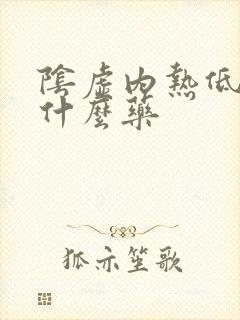 陰虛內熱低
什麼藥
狐亦笙歌